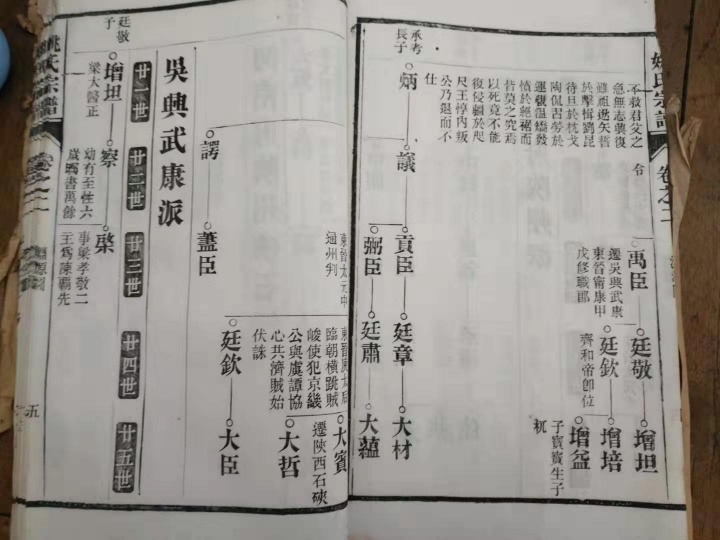 姚氏宗譜
卷之二
不救君父之
急無志襲復
雖祖逖矢晢
於擊楫劉琨
待旦於枕戈
陶侃習勞於
運甓温嶠毅
憤於絕裾而
皆莫之究焉
以死竟不能
復侵疆於咫
尺王惇內叛
公乃退而不
仕
令
禹臣
遷吳興武康
東晉甯康甲
戌修職郎
廷敬
增坦
廷欽
齊和帝卽位
增培
增益
子賓賓生子
祝
承考
長子
炳
議
貢臣
廷章
大材
弼臣
廷肅
大蘊
諤
藎臣
東晉太元中
通州判
臨朝橫跳賊
峻使犯京畿
公與虞譚協
心共濟賊始
伏誅
大賓
遷陝西石硤
大哲
廷欽
大臣
吳興武康派
廿一世
廿二世
廿三世
廿四世
廿五世
廷敬
子
增坦
梁大醫正
察
幼有至性六
歲書萬餘
棨
事梁孝敬二
王爲陳覇先
姚氏宗譜
卷之二
五